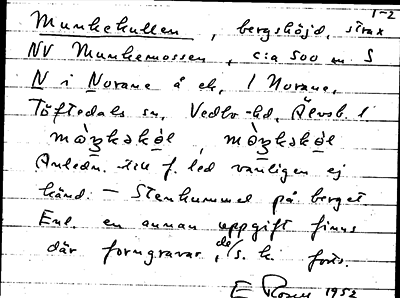 1-2
Munkekullen, bergshöjd, strax
NV Munkemossen, c:a 500 m S
N i Norane å ek, 1 Norane,
Töftedals sn, Vedbo hd, Älvsb. l.
Anledn. till f. led vanligen ej
känd. – Stenkummel på berget.
Enl. en annan uppgift finns
där forngravar, de s. k. forts.
E Rosell 1952